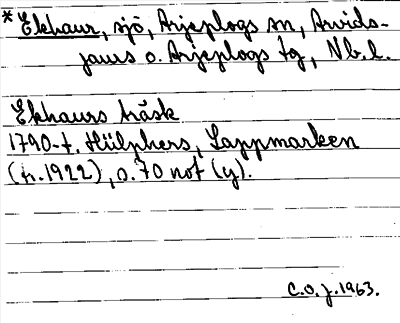 *Ekhaur, sjö, Arjeplogs sn, Arvids-
jaurs o. Arjeplogs tg, Nb. l.
Ekhaurs träsk
1790-t. Hülphers, Lappmarken
(tr. 1922), s. 70 not (y).
C.O.J. 1963.